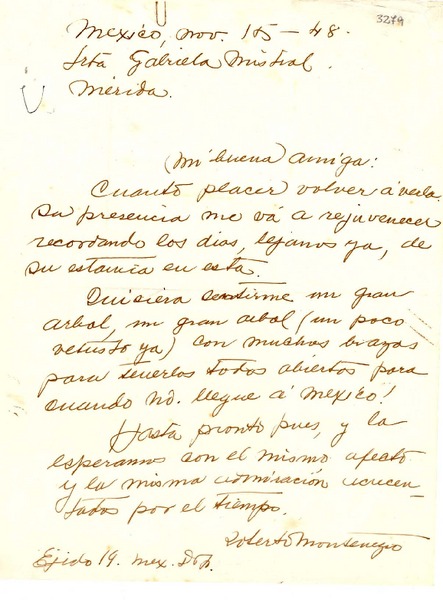 3279
Mexico, nov. 15 - 48.
Srta Gabriela Mistral.
Mérida.
Mi buena amiga:
Cuanto placer volver á verla.
su presencia me vá a rejuvenecer
recordando los dias, lejanos ya, de
su estancia en esta.
Quisiera sentirme un gran
arbol, un gran arbol (un poco
vetusto ya) con muchos brazos
para tenerlos todos abiertos para
cuando Ud. llegue a México!
Hasta pronto pues, y la
esperamos con el mismo afecto
y la misma admiración acrecen-
tados por el tiempo.
Roberto Montenegro
Ejido 19. Mex. D.F.